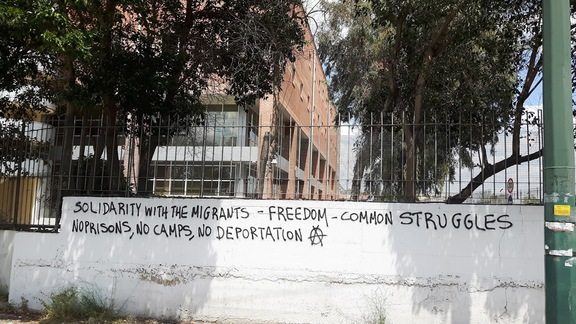 SOLIDARITY WITH THE MIGRANTS - FREEDOM - COMMON STRUGGLES
NO PRISONS, NO CAMPS, NO DEPORTATION Ⓐ